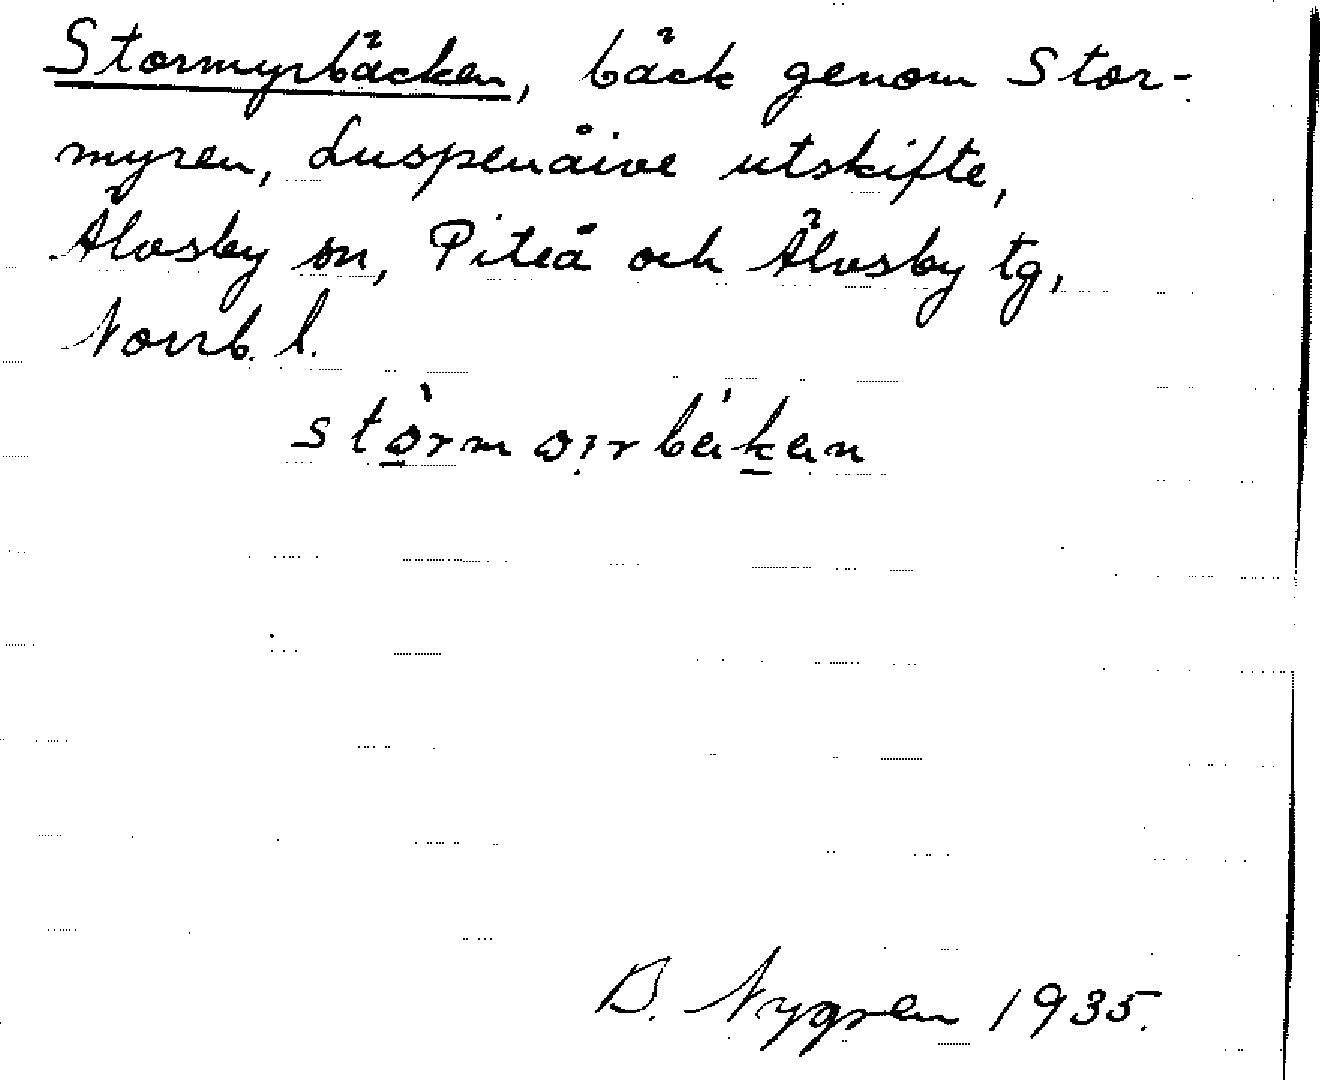 Stormyrbäcken, bäck genom Stor-
myren, Luspenåive utskifte,
Älvsby sn, Piteå och Älvsby tg,
Norrb. l.
B. Nygren 1935.